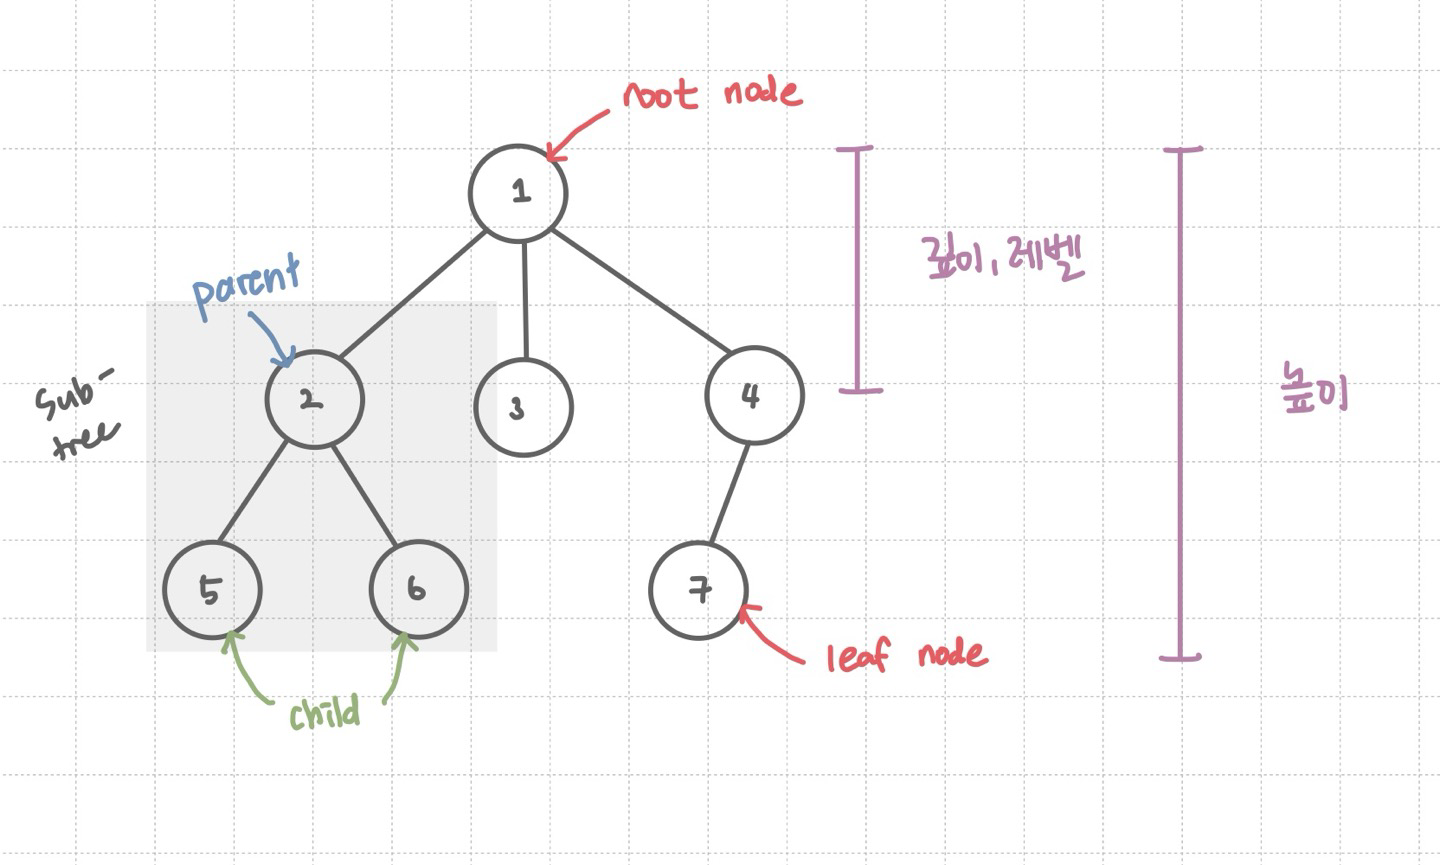 root node
1
parent
깊이, 레벨
sub-
tree
2
3
4
높이
5
6
7
leaf node
child